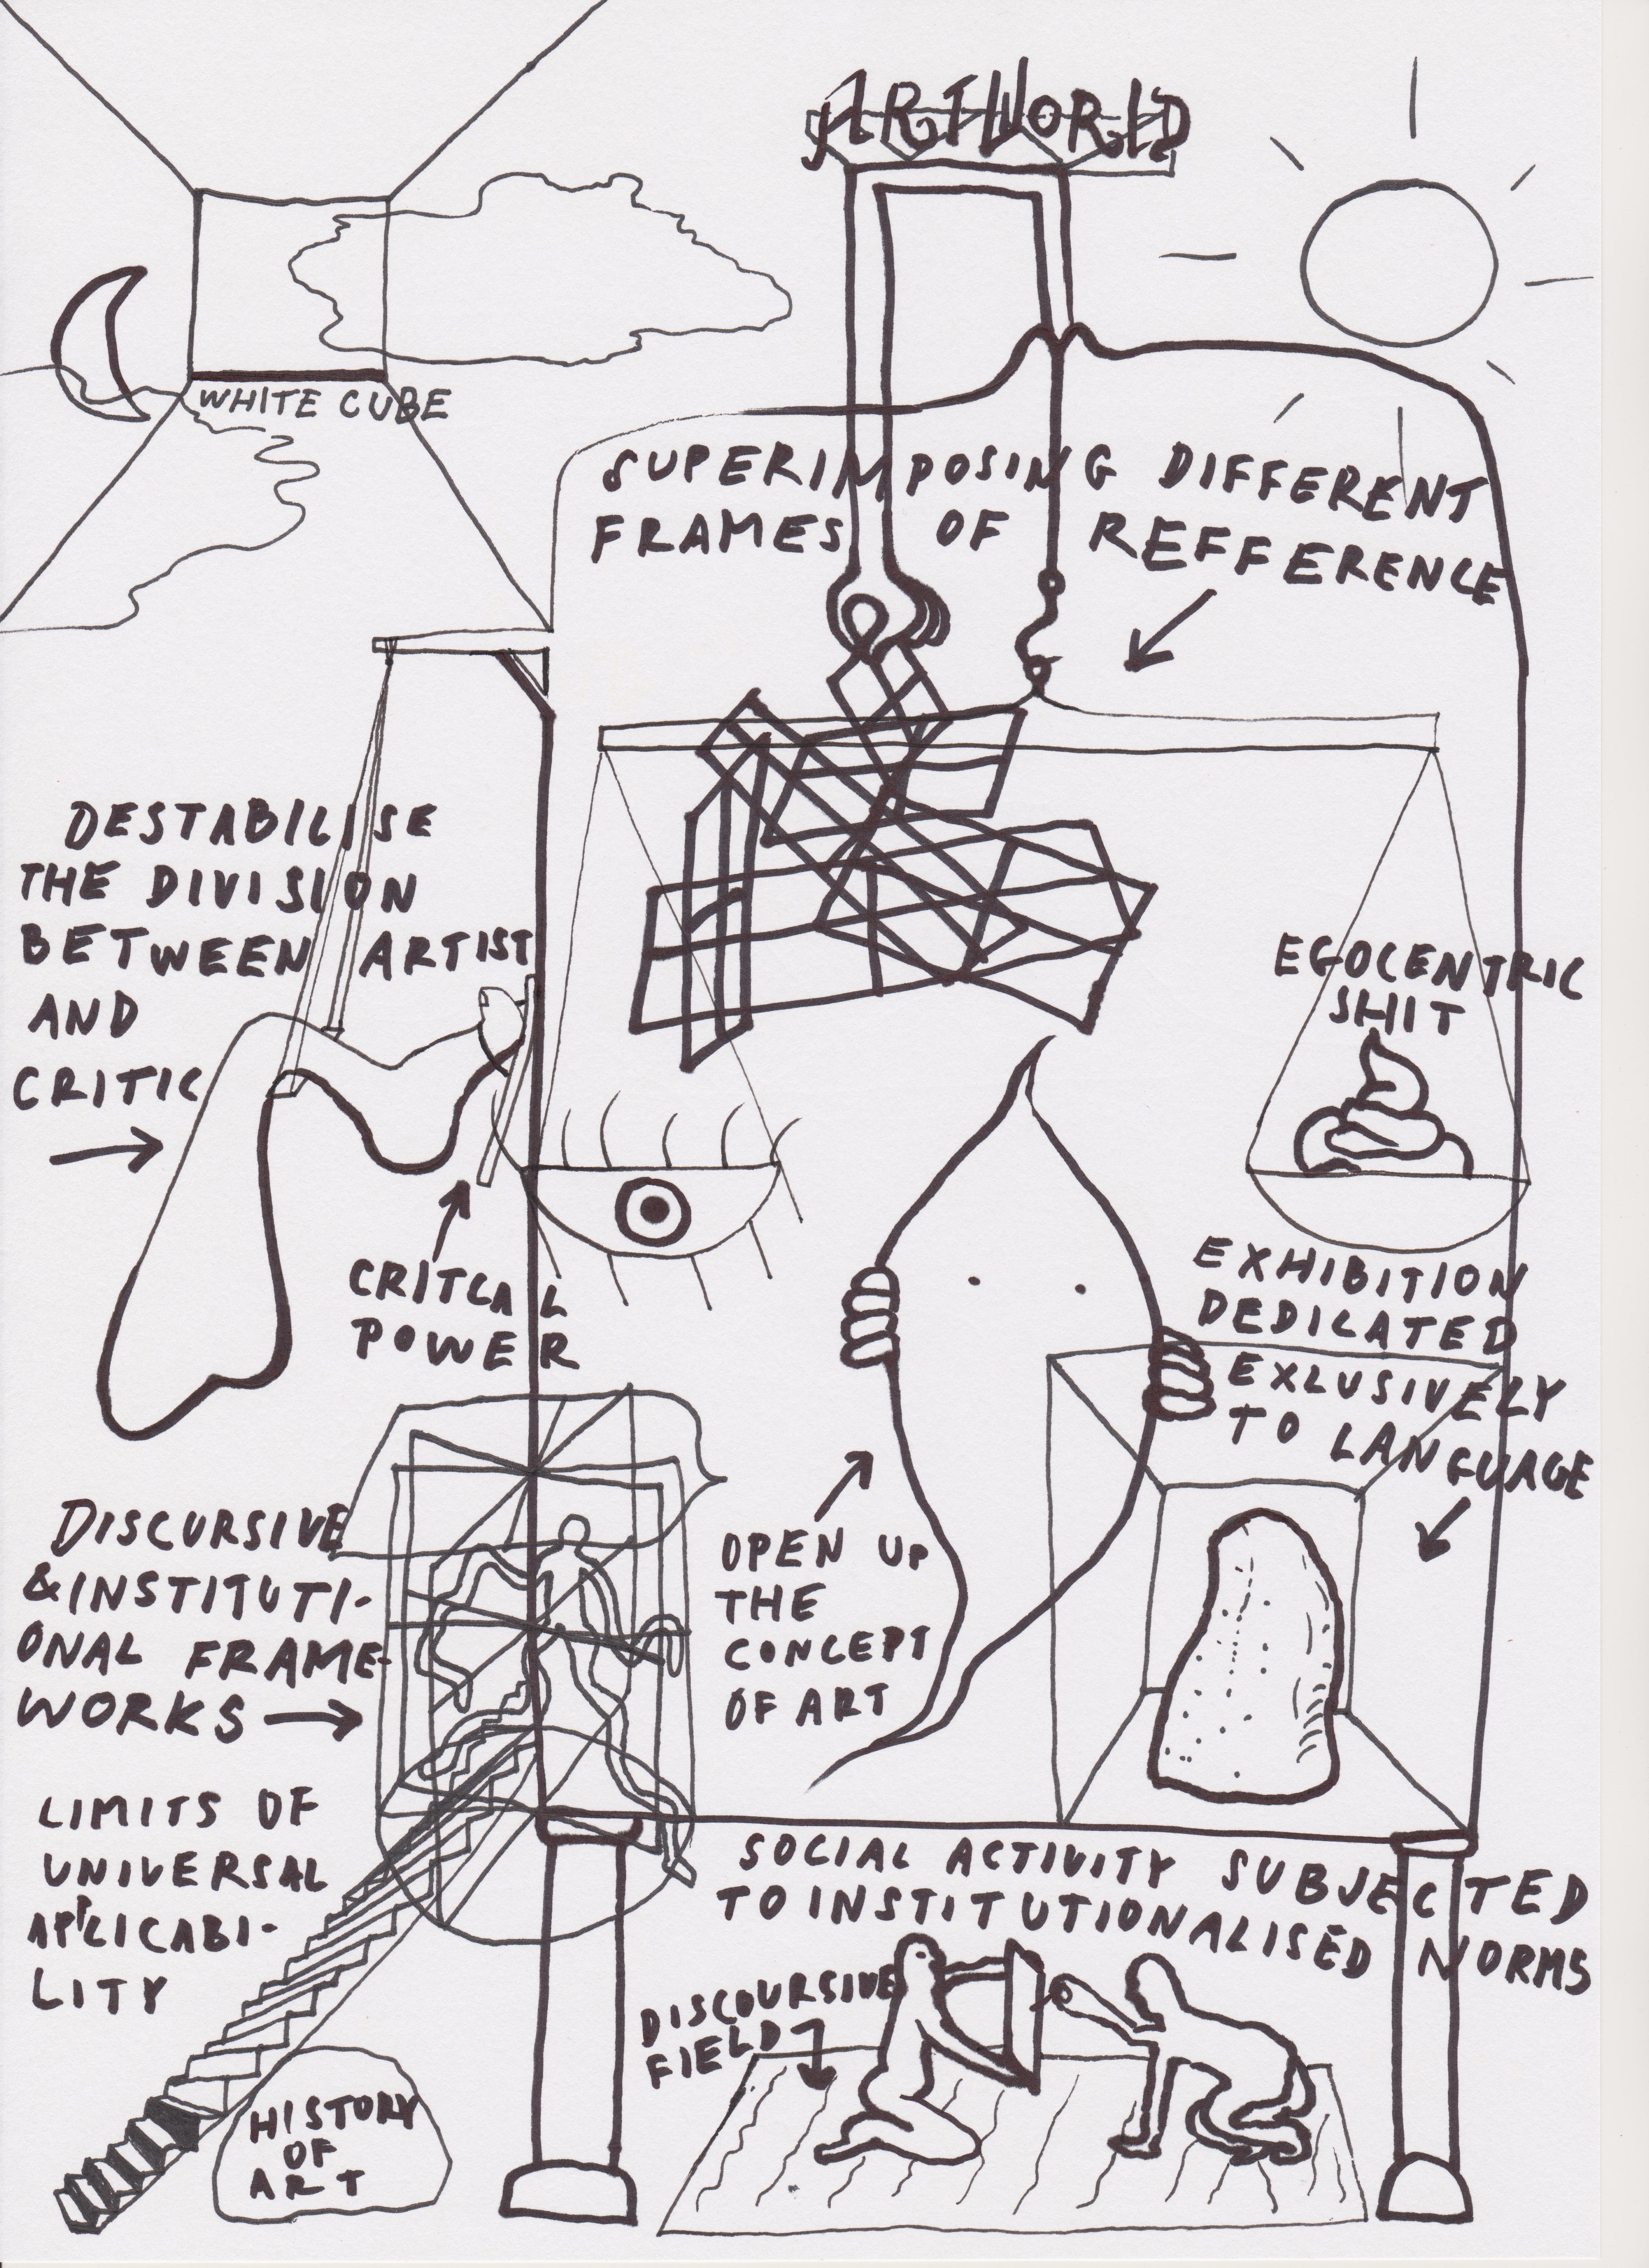 ARTWORLD
WHITE CUBE
SUPERIMPOSING DIFFERENT
FRAMES OF REFFERENCE
DESTABILISE
THE DIVISION
BETWEEN ARTIST
AND
CRITIC
EGOCENTRIC
SHIT
CRITCAL
POWER
EXHIBITION
DEDICATED
EXLUSIVELY
TO LANGUAGE
DISCURSIVE
&INSTITUTI-
ONAL FRAME-
WORKS
OPEN UP
THE
CONCEPT
OF ART
LIMITS OF
UNIVERSAL
APPLICABI-
LITY
SOCIAL ACTIVITY SUBJECTED
TO INSTITUTIONALISED NORMS
DISCOURSIVE
FIELD
HISTORY
OF
ART